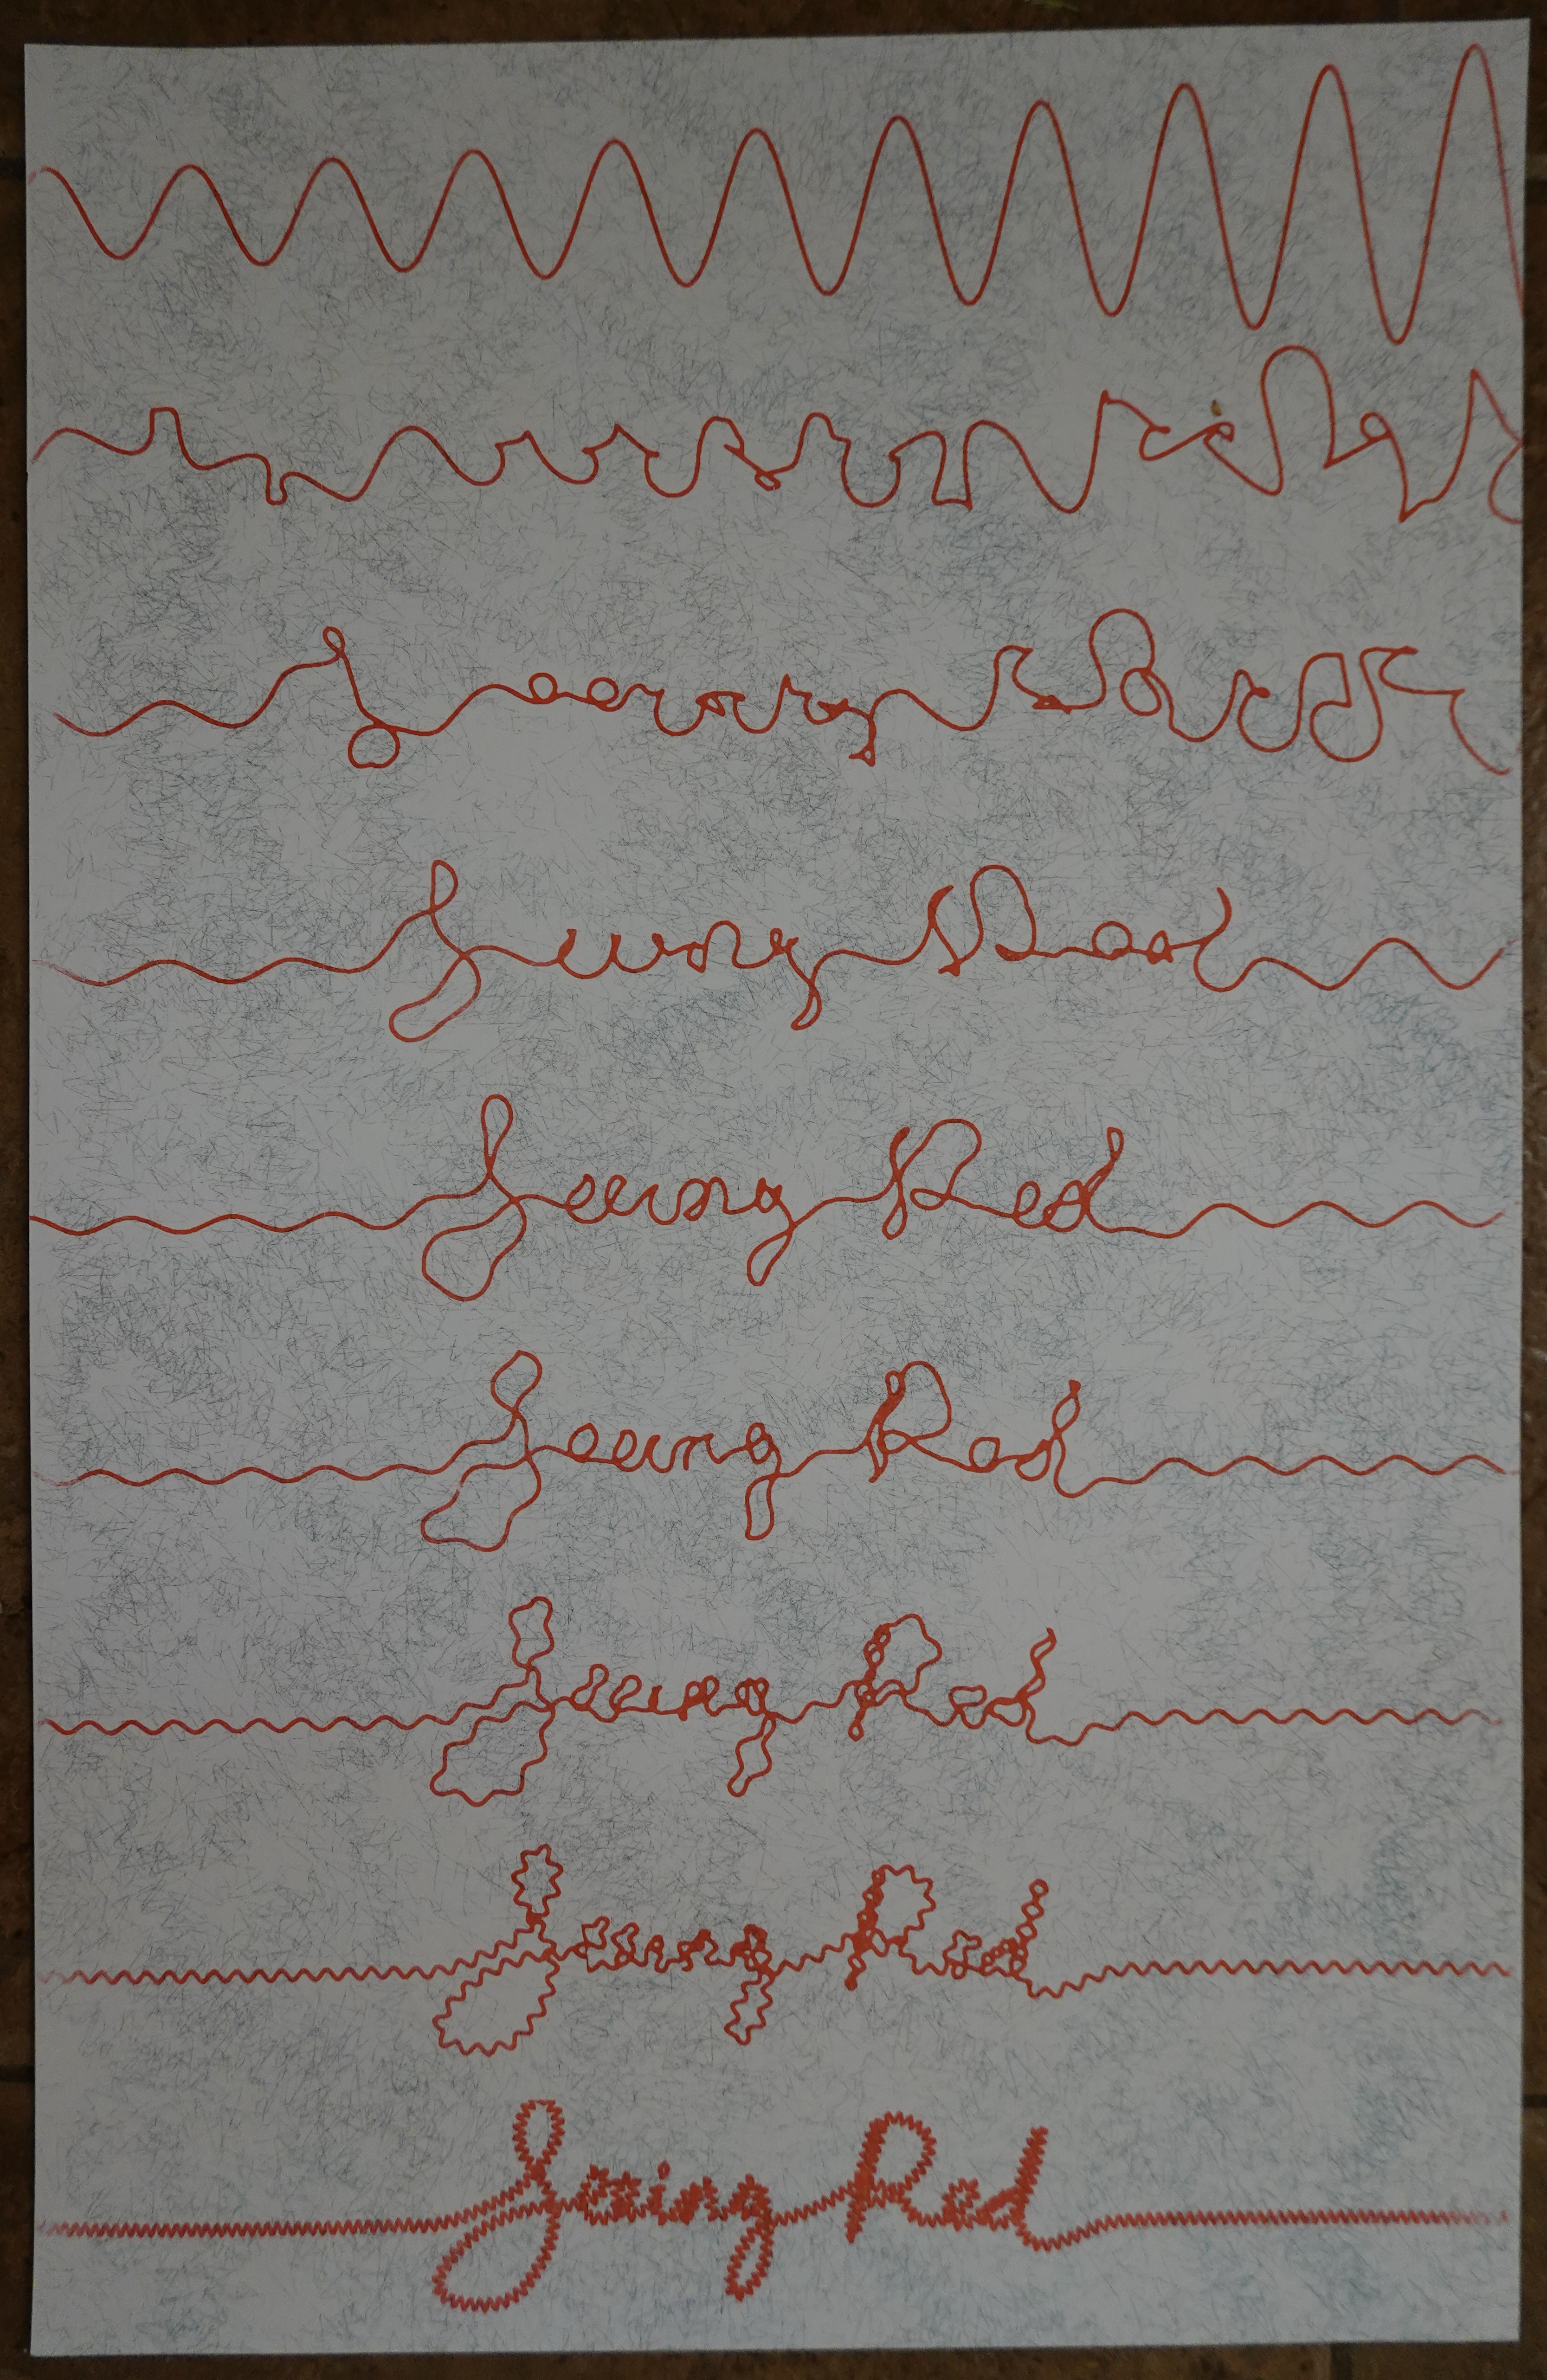 Seeing Red
Seeing Red
Seeing Red
Seeing Red
Seeing Red